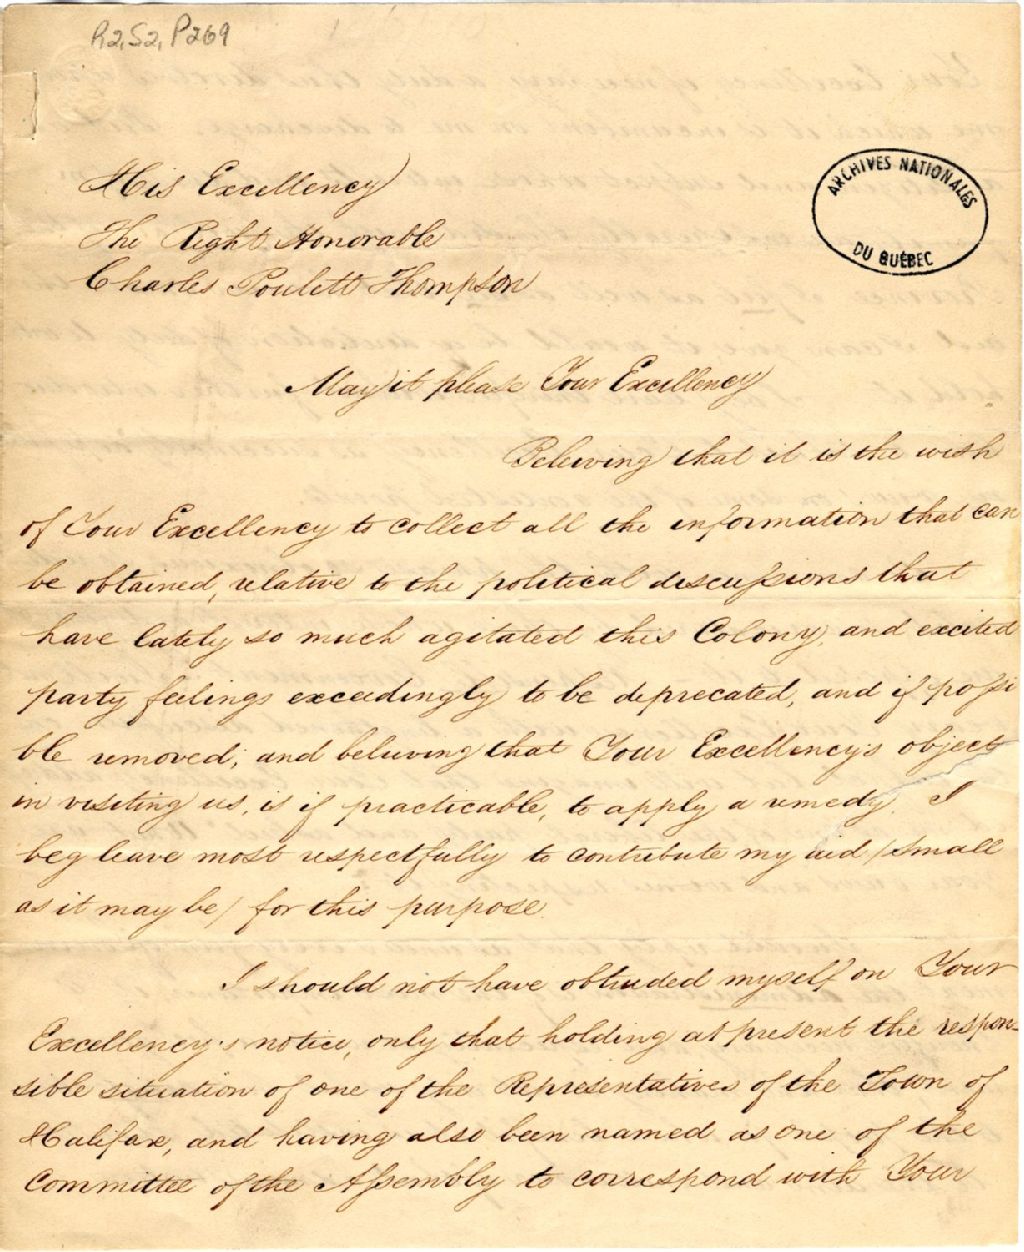 R2, S2, P269
ARCHIVES NATIONALES
DU QUÉBEC
His Excellency
The Right Honorable
Charles Poulett Thompson
May it please Your Excellency
Beleiving that it is the wish
of Your Excellency to collect all the information that can
be obtained, relative to the political discussions that
have lately so much agitated this Colony, and excited
party feelings exceedingly to be deprecated, and if possi
ble removed; and believing that Your Excellency's object
in visiting us, is if practicable, to apply a remedy. I
beg leave most respectfully to contribute my aid (small
as it may be) for this purpose.
I should not have obtruded myself on Your
Excellency's notice, only that holding at present the respon-
sible situation of one of the Representatives of the Town of
Halifax, and having also been named as one of the
Committee of the Assembly to correspond with Your